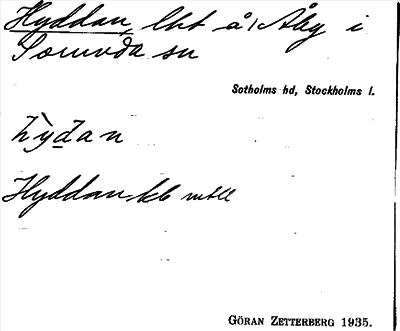 Hyddan, lht å Åby i
Sorunda sn
Sotholms hd, Stockholms l.
hỳdan
Hyddan kb
GÖRAN ZETTERBERG 1935.